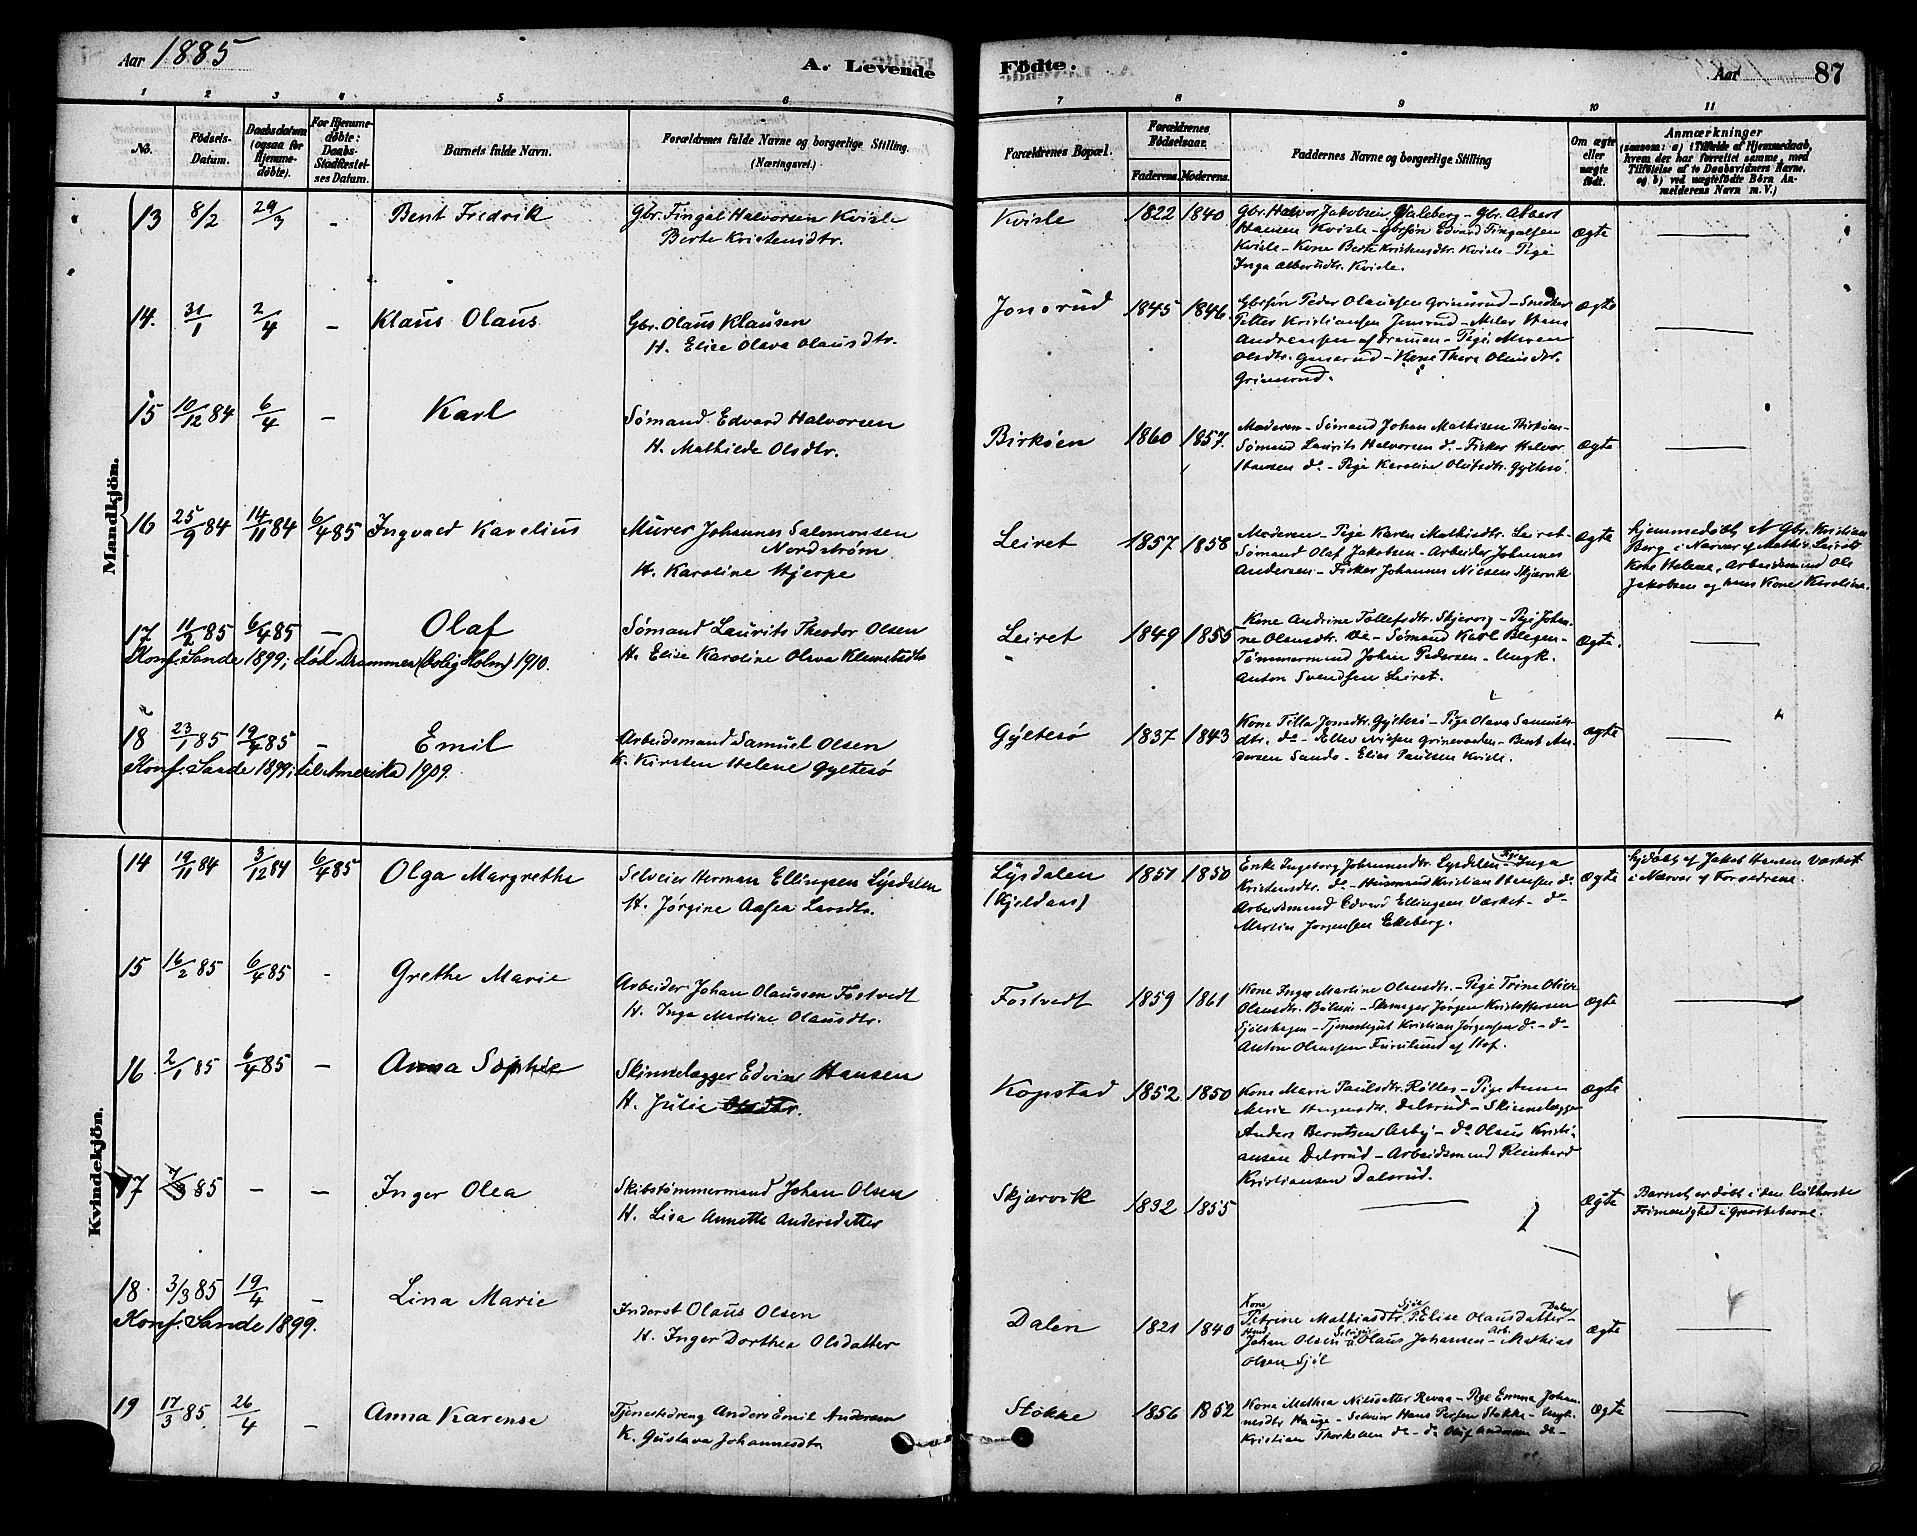 Aar 1885
A. Levende
Födte.
Aar
87
1 2 3 4 5 6 7 8 9 10 11
No.
Födsels-Datum.
Daabsdatum (ogsaa for Hjemmedöbte).
For Hjemmedöbte: Daabs-Stadfæstelses Datum.
Barnets fulde Navn.
Forældrenes fulde Navne og borgerlige Stilling. (Næringsvei.)
Forældrenes Bopæl.
Forældrenes Födselsaar.
Faderens. Moderens.
Faddernes Navne og borgerlige Stilling
Om ægte eller uægte födt.
Anmærkninger
(saasom: a) i Tilfælde af Hjemmedaab, hvem der har forrettet samme, med Tilföielse af to Daabsvidners Navne, og b) ved uægtefödte Börn Anmelderens Navn m. V.)
Mandkjön.
13 8/2 29/3 - Bent Fredrik
Gbr. Fingal Halvorsen Kvisle
Berte Kristensdtr.
Kvisle 1822 1840
Gbr. Halvor Jakobsen Galeberg - Gbr. Albert
Hansen Kvisle - Gbrsøn Edvard Fingalsen
Kvisle - Kone Berte Kristensdtr. Kvisle - Pige
Inga Albertsdtr. Kvisle.
Ægte
14. 31/1 2/4 - Klaus Olaus
Gbr. Olaus Klausen
H. Elise Olava Olausdtr.
Jonsrud 1845 1846.
Gbrsøn Peder Olaussen Grimsrud - Snedker
Petter Kristiansen Jonsrud - Maler Hans
Andreassen af Drammen - Pige Maren
Olsdtr. Grimsrud - Kone Thora Olausdtr.
Grimsrud.
Ægte
15 10/12 84 6/4 - Karl
Sømand Edvard Halvorsen
H. Mathilde Olsdtr.
Birkøen 1860 1857.
Moderen - Sømand Johan Mathisen Birkøen -
Sømand Laurits Halvorsen do - Fisker Halvor
Hansen do - Pige Karoline Olafsdtr. Gyltesø.
Ægte
16 25/9 84 14/11 84 6/4 85 Ingvald Karelius
Murer Johannes Salomonsen
Nordstrøm
H. Karoline Hjerpe
Leiret 1857 1858
Moderen - Pige Karen Mathisdtr. Leiret -
Sømand Olaf Jakobsen - Arbeider Johannes
Andersen - Fisker Johannes Nilsen Skjærvik
Ægte
hjemmedøbt af Gbr. Kristian
Berg i Nærvær af Mathis Leirets
Kone Helene, Arbeidsmand Ole
Jakobsen og hans Kone Karoline.
17 11/2 85 6/4 85 - Olaf
Sømand Laurits Theodor Olsen
H. Elise Karoline Olava Klemetsdtr
Konf. Sande 1899; død Drammen (bolig Holm) 1910.
Leiret 1849 1855
Kone Andrine Tollefsdtr. Skjervig - Pige Johanne
Olausdtr. do - Sømand Karl Blegen -
Tømmermand Johan Pedersen - Ungk.
Anton Svendsen Leiret.
Ægte.
18 23/1 85 19/4 85 - Emil
Arbeidsmand Samuel Olsen
K. Kirsten Helene Gyltesø
Konf. Sande 1899; til Amerika 1909.
Gyltesø 1837 1843
Kone Tilla Jonsdtr. Gyltesø - Pige Olava Samuelsdtr.
do - Ellev Nielsen Grinevolden - Bent Andersen
Sande - Elias Paulsen Kvisle.
Ægte
Kvindekjön.
14 19/11 84 3/12 84 6/4 85 Olga Margrethe
Selveier Herman Ellingsen Lysdalen
H. Jørgine Aasea Larsdtr.
Lysdalen
(Kjeldaas)
1851 1850
Enke Ingeborg Johannesdtr. Lysdalen - Pige Inga
Kristensdtr. do - Husmand Kristian Hansen do
Arbeidsmand Edvard Ellingsen Værket - do
Martin Jørgensen Ekeberg.
Ægte
hjdøbt af Jakob Hansen Værket
i Nærvær af Forældrene.
15 16/2 85 6/4 85 - Grethe Marie
Arbeider Johan Olaussen Fostvedt
H. Inga Martine Olausdtr.
Fostvedt 1859 1861
Kone Inga Martine Olausdtr. - Pige Trine Olise
Olausdtr. - Skomager Jørgen Kristoffersen
Sjølshagen - Tjenestegut Kristian Jørgensen do - do
Anton Olaussen Furulund af Hof.
Ægte
16 2/1 85 6/4 85 - Anna Sophie
Skinnelægger Edvin Hansen
H. Julie Olsdtr.
Kopstad 1852 1850
Kone Marie Paulsdtr. Rølles - Pige Anna
Marie Dalsrud - Skinnelægger
Anders Berntsen Aasby - do Olaus Kristiansen
Dalsrud - Arbeidsmand Reinhard
Kristiansen Dalsrud.
Ægte
17 7/3 85 - - Inger Olea
Skibstømmermand Johan Olsen
H. Lisa Annette Andersdatter
Skjærvik 1832 1855
Ægte
Barnet er døbt i den lutherske
Frimenighed i Græsskebærne.
18 3/3 85 19/4 - Lina Marie
Inderst Olaus Olsen
H. Inger Dorthea Olsdatter
Konf. Sande 1899.
Dalen 1821 1840
Kone Petrine Mathiasdtr. Sjøl P. Elise Olausdatter Dalen -
Johan Olsen Selveier Olaus Johansen - Arb. Mathias
Olsen Sjøl
Ægte
19 17/3 85. 26/4 - Anna Karense
Tjenestedreng Anders Emil Andersen
K. Gustava Johannesdtr
Støkke 1856 1852
Kone Mathea Nilsdatter Revaa - Pige Emma Johannesdtr
Hauge - Selveier Hans Persen Støkke - Ungk.
Kristian Thorkelsen do - do Oluf Andersen do -
Ægte